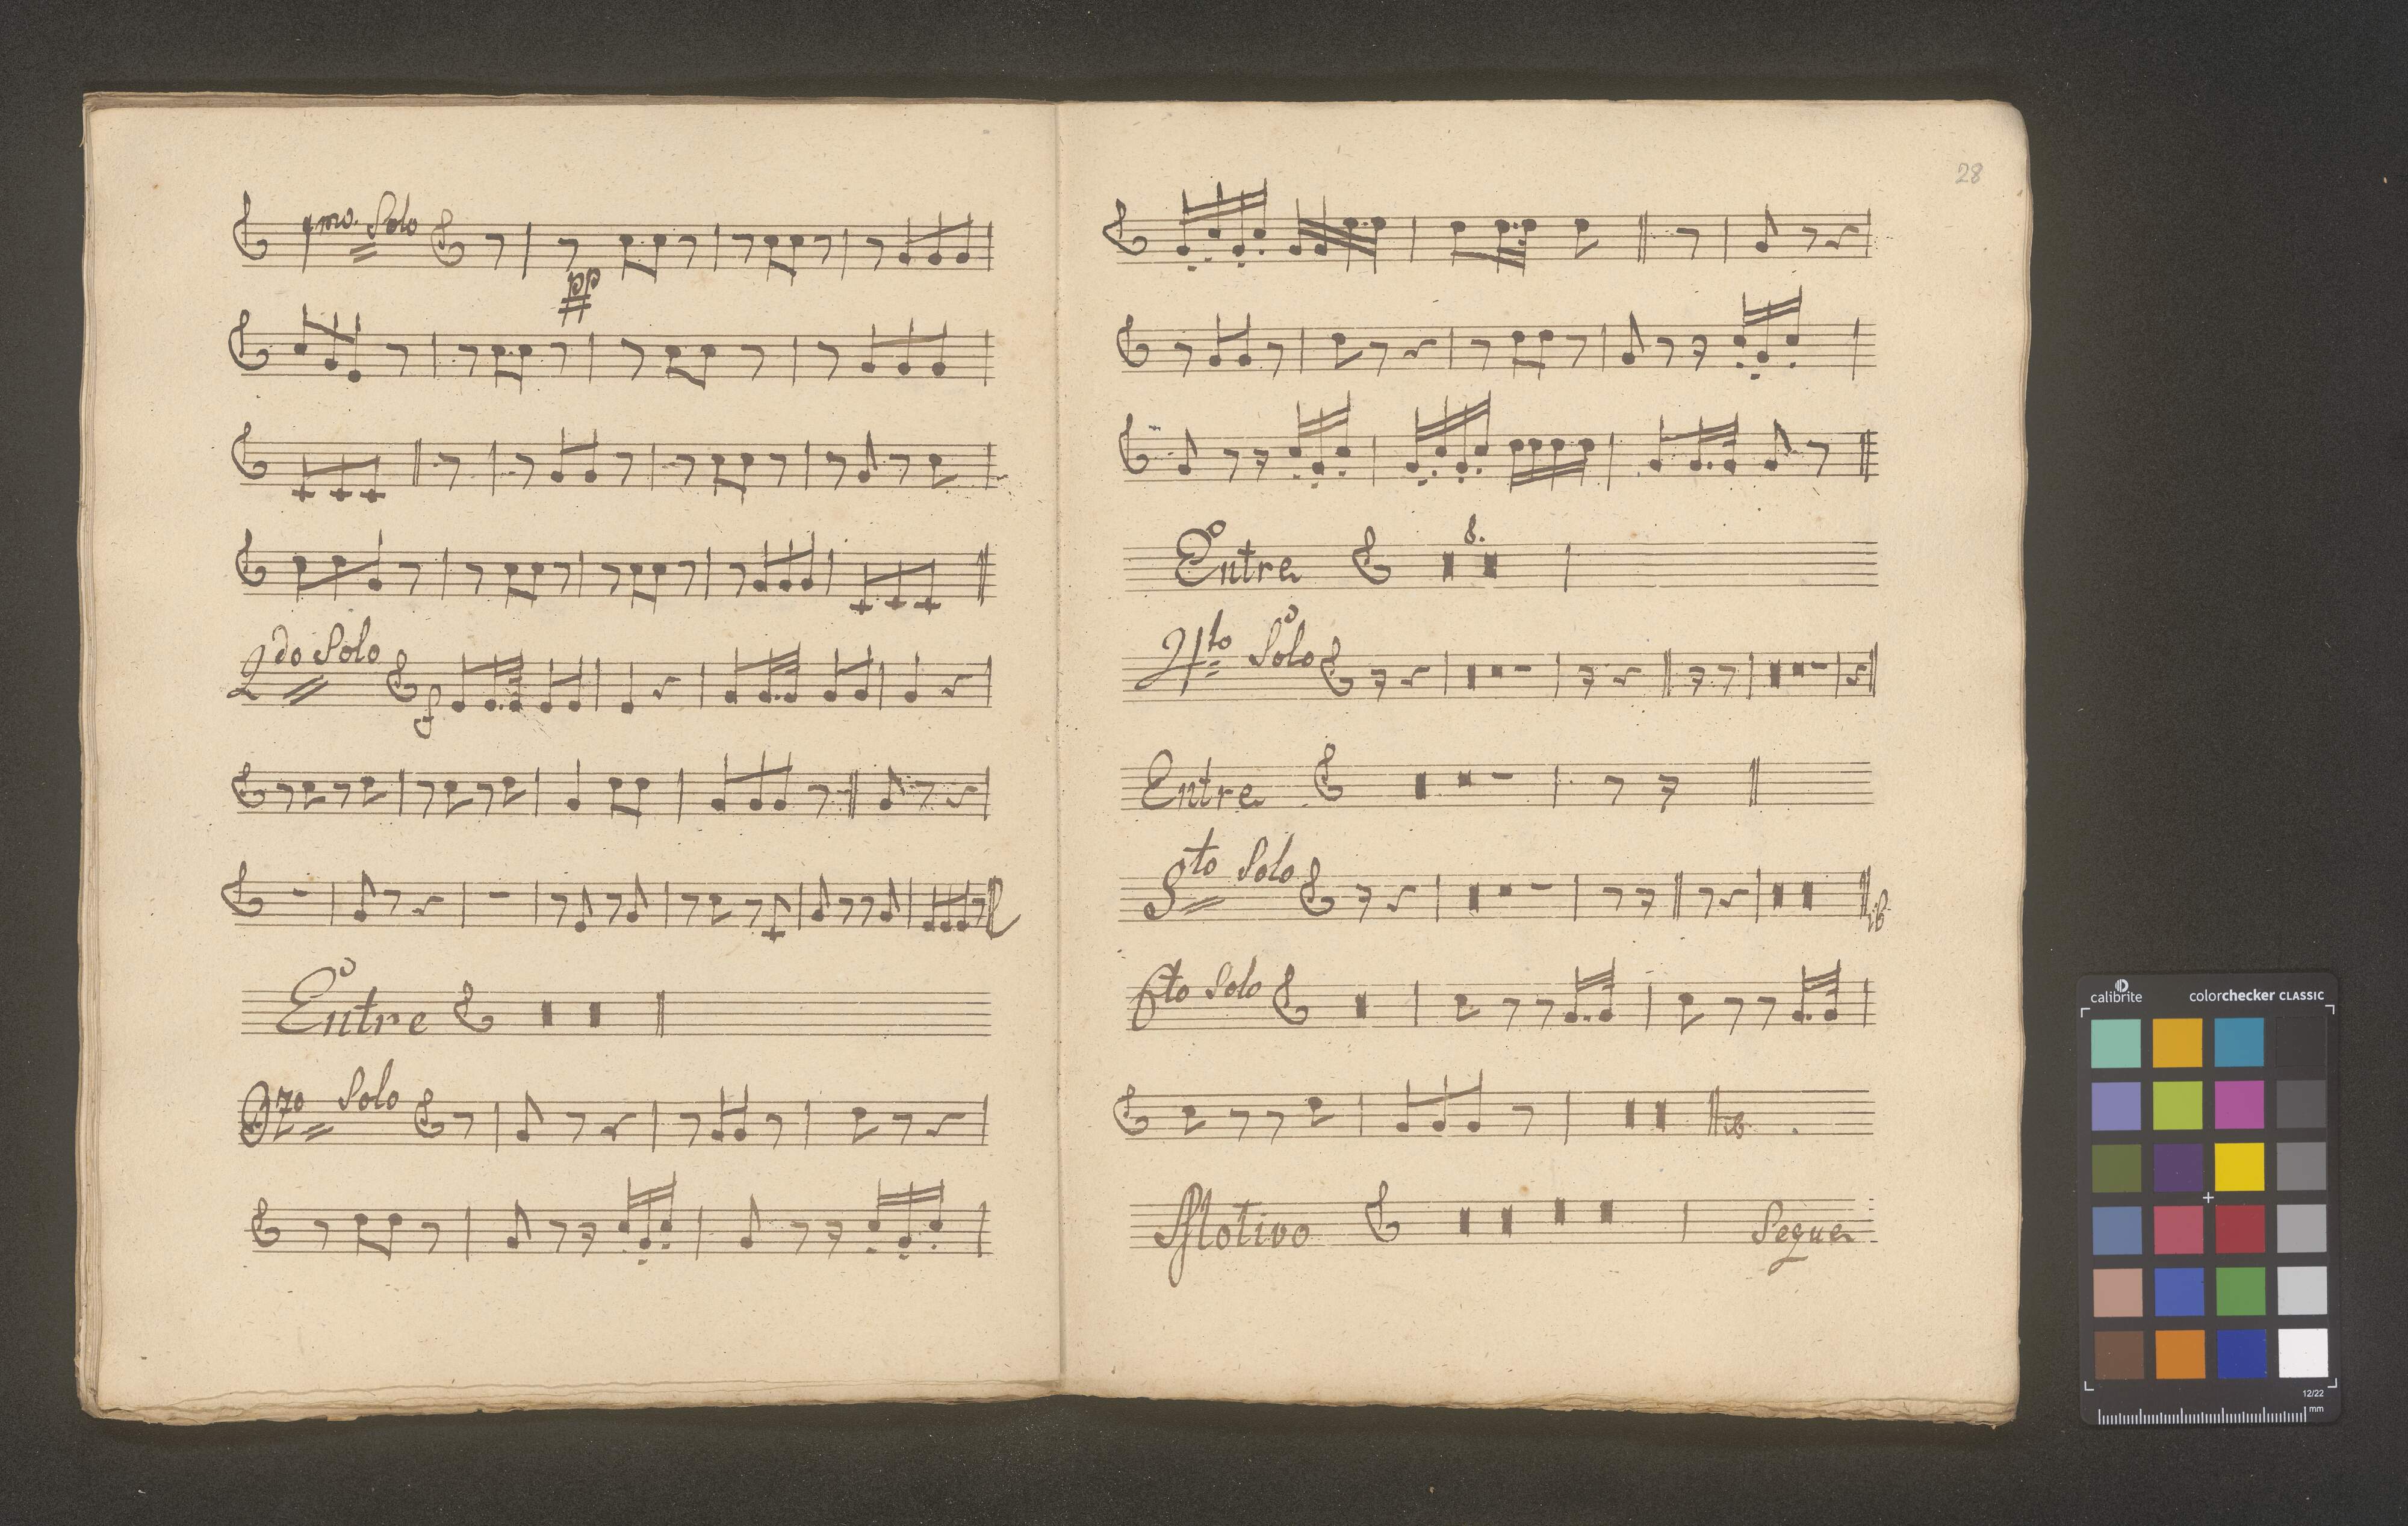 1mo. Solo
pp
2do Solo
f
Entre
3zo Solo
28
Entre
8.
4to Solo
Entre
5to Solo
6to Solo
Motivo
Segue
calibrite colorchecker CLASSIC
12/22
mm